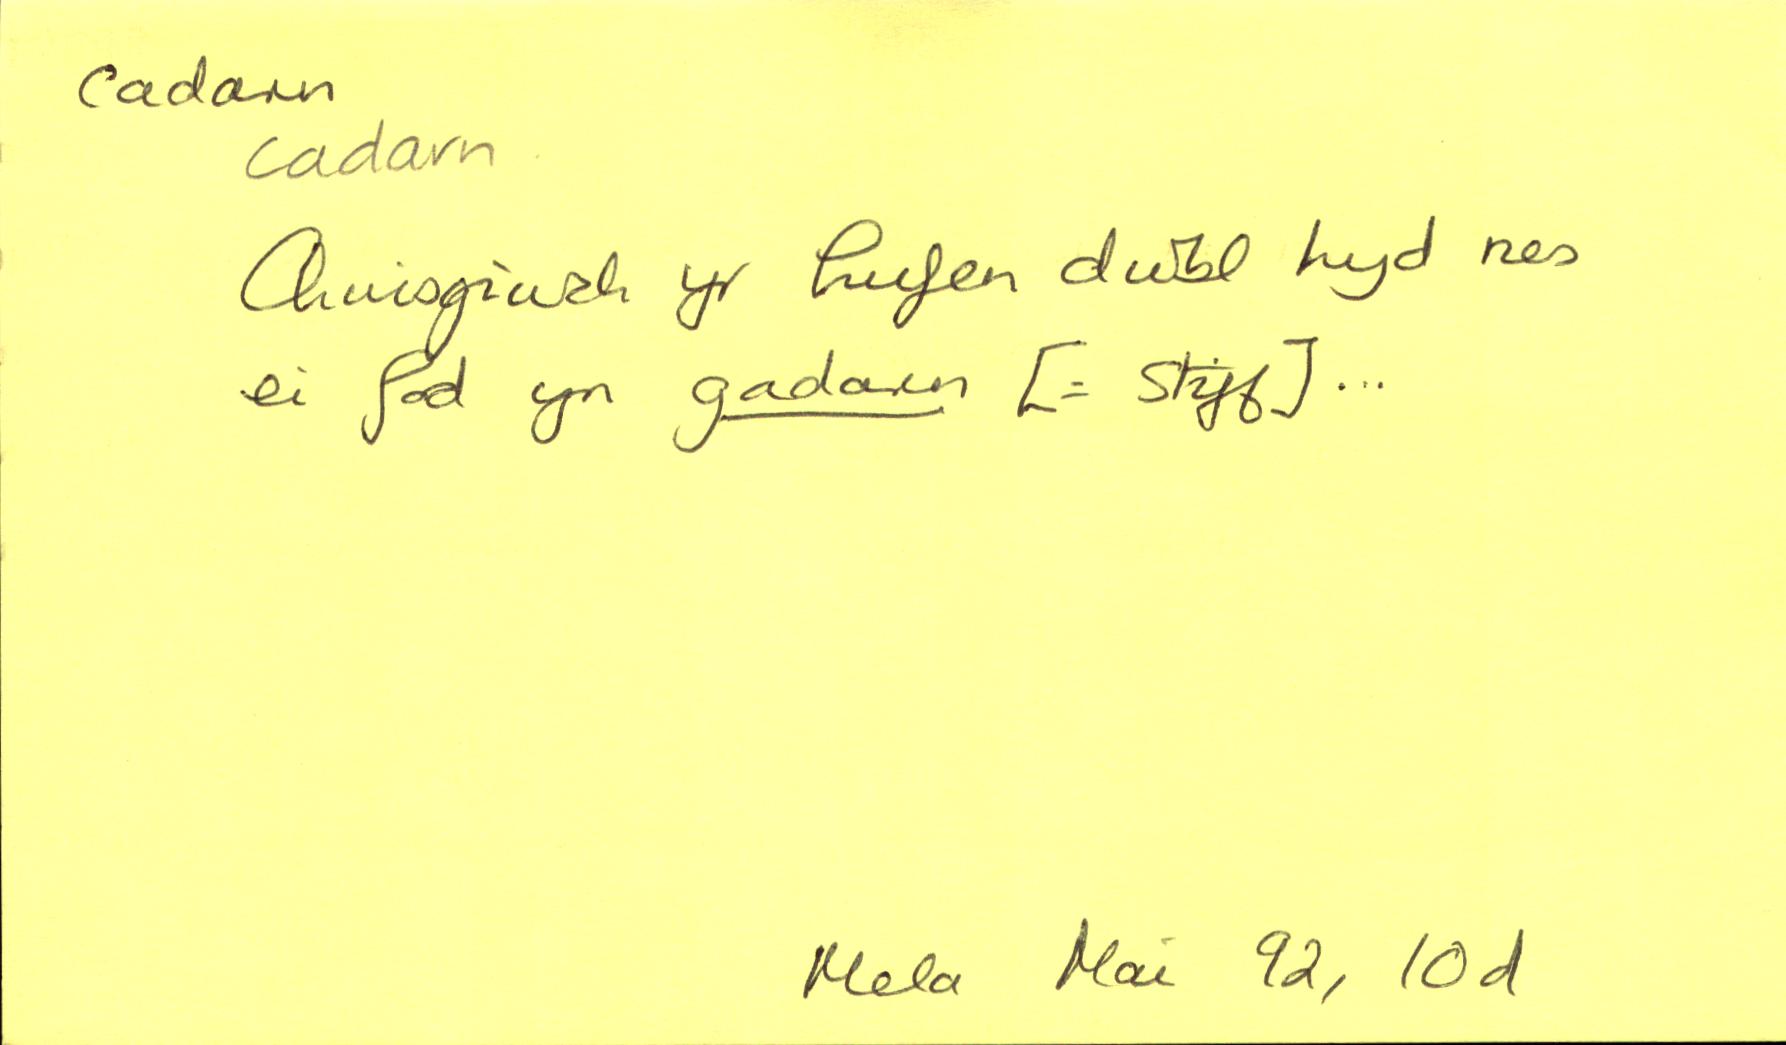 cadarn
cadarn
Chwisgiwch yr hufen dwbl hyd nes
ei fod yn gadarn [= stiff]...
Mela Mai 92, 10d